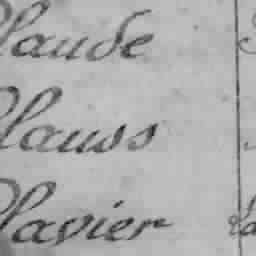 Claude
Clauss
Clavier